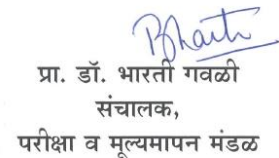 Bharti
प्रा. डॉ. भारती गवळी
संचालक,
परीक्षा व मूल्यमापन मंडळ